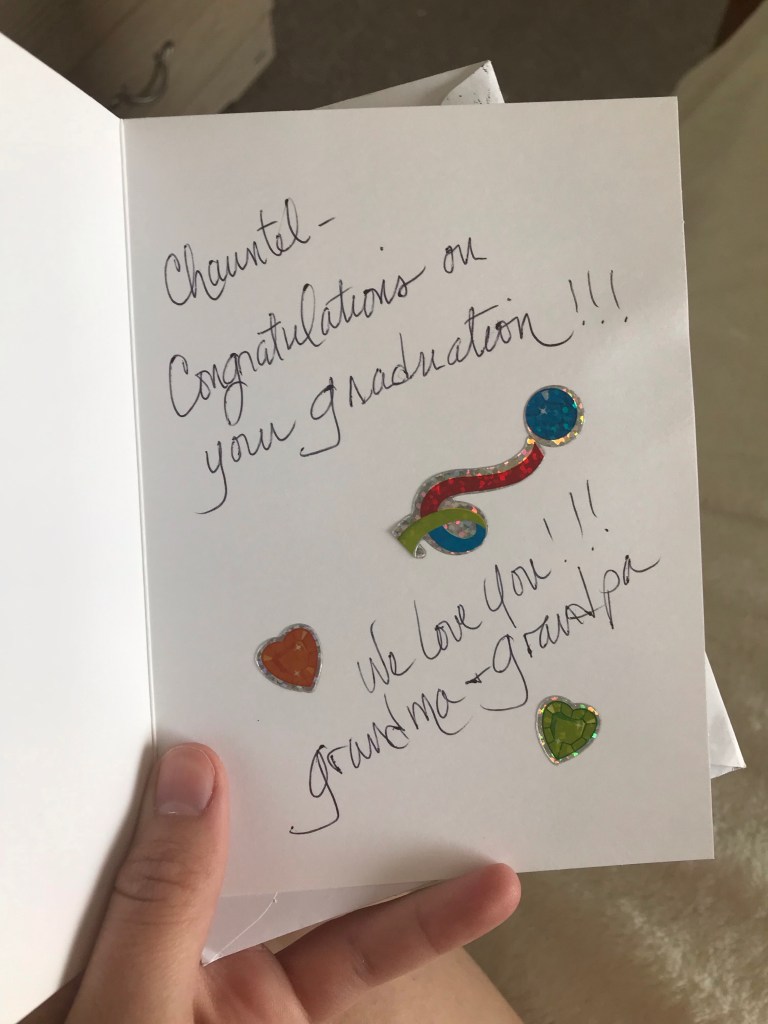 Chauntel -
Congratulations on
your graduation!!!
We love you!!!
grandma + grandpa